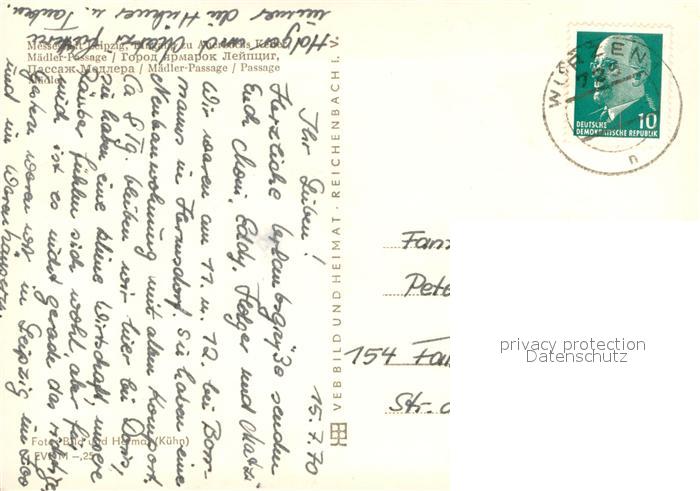 Messestadt Leipzig, Eingang zu Auerbachs Keller
Mädler-Passage / Город ярмарок Лейпциг,
Пассаж Мэдлера / Mädler-Passage / Passage
Mädler
Foto: Bild und Heimat (Kühn)
EVP M -,25
VEB BILD UND HEIMAT · REICHENBACH I. V.
15.7.70
Ihr Lieben!
Herzliche Urlaubsgrüße senden
Euch Moni, Eddy, Holger und Matzi
Wir waren am 11. u. 12. bei
manns in Hermsdorf. Sie haben eine
Neubauwohnung mit allem Komfort.
Ca 8 Tg. bleiben wir hier bei Doris,
Sie haben eine kleine Wirtschaft, unsere
Räuber fühlen sich wohl, aber für
mich ist es nicht gerade das richtige
Gestern waren wir in Leipzig im Zoo
und in Warenhäusern.
Holger und Matzi füttern
immer die Hühner u. Tauben.
10
DEUTSCHE
DEMOKRATISCHE REPUBLIK
n
Fam
Pete
154 Fal
Str.
privacy protection
Datenschutz